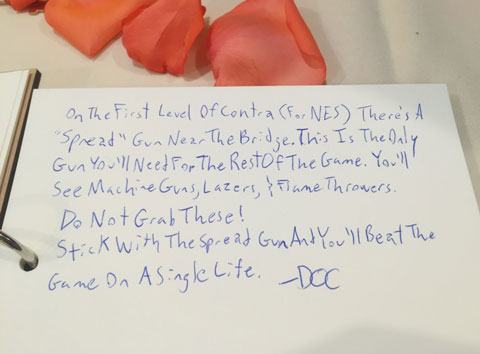 On The First Level Of Contra (For NES) There's A
"Spread" Gun Near The Bridge. This Is The Only
Gun You'll Need For The Rest Of The Game. You'll
See Machine Guns, Lazers, & Flame Throwers.
Do Not Grab These!
Stick With The Spread Gun And You'll Beat The
Game On A Single Life. -DCC